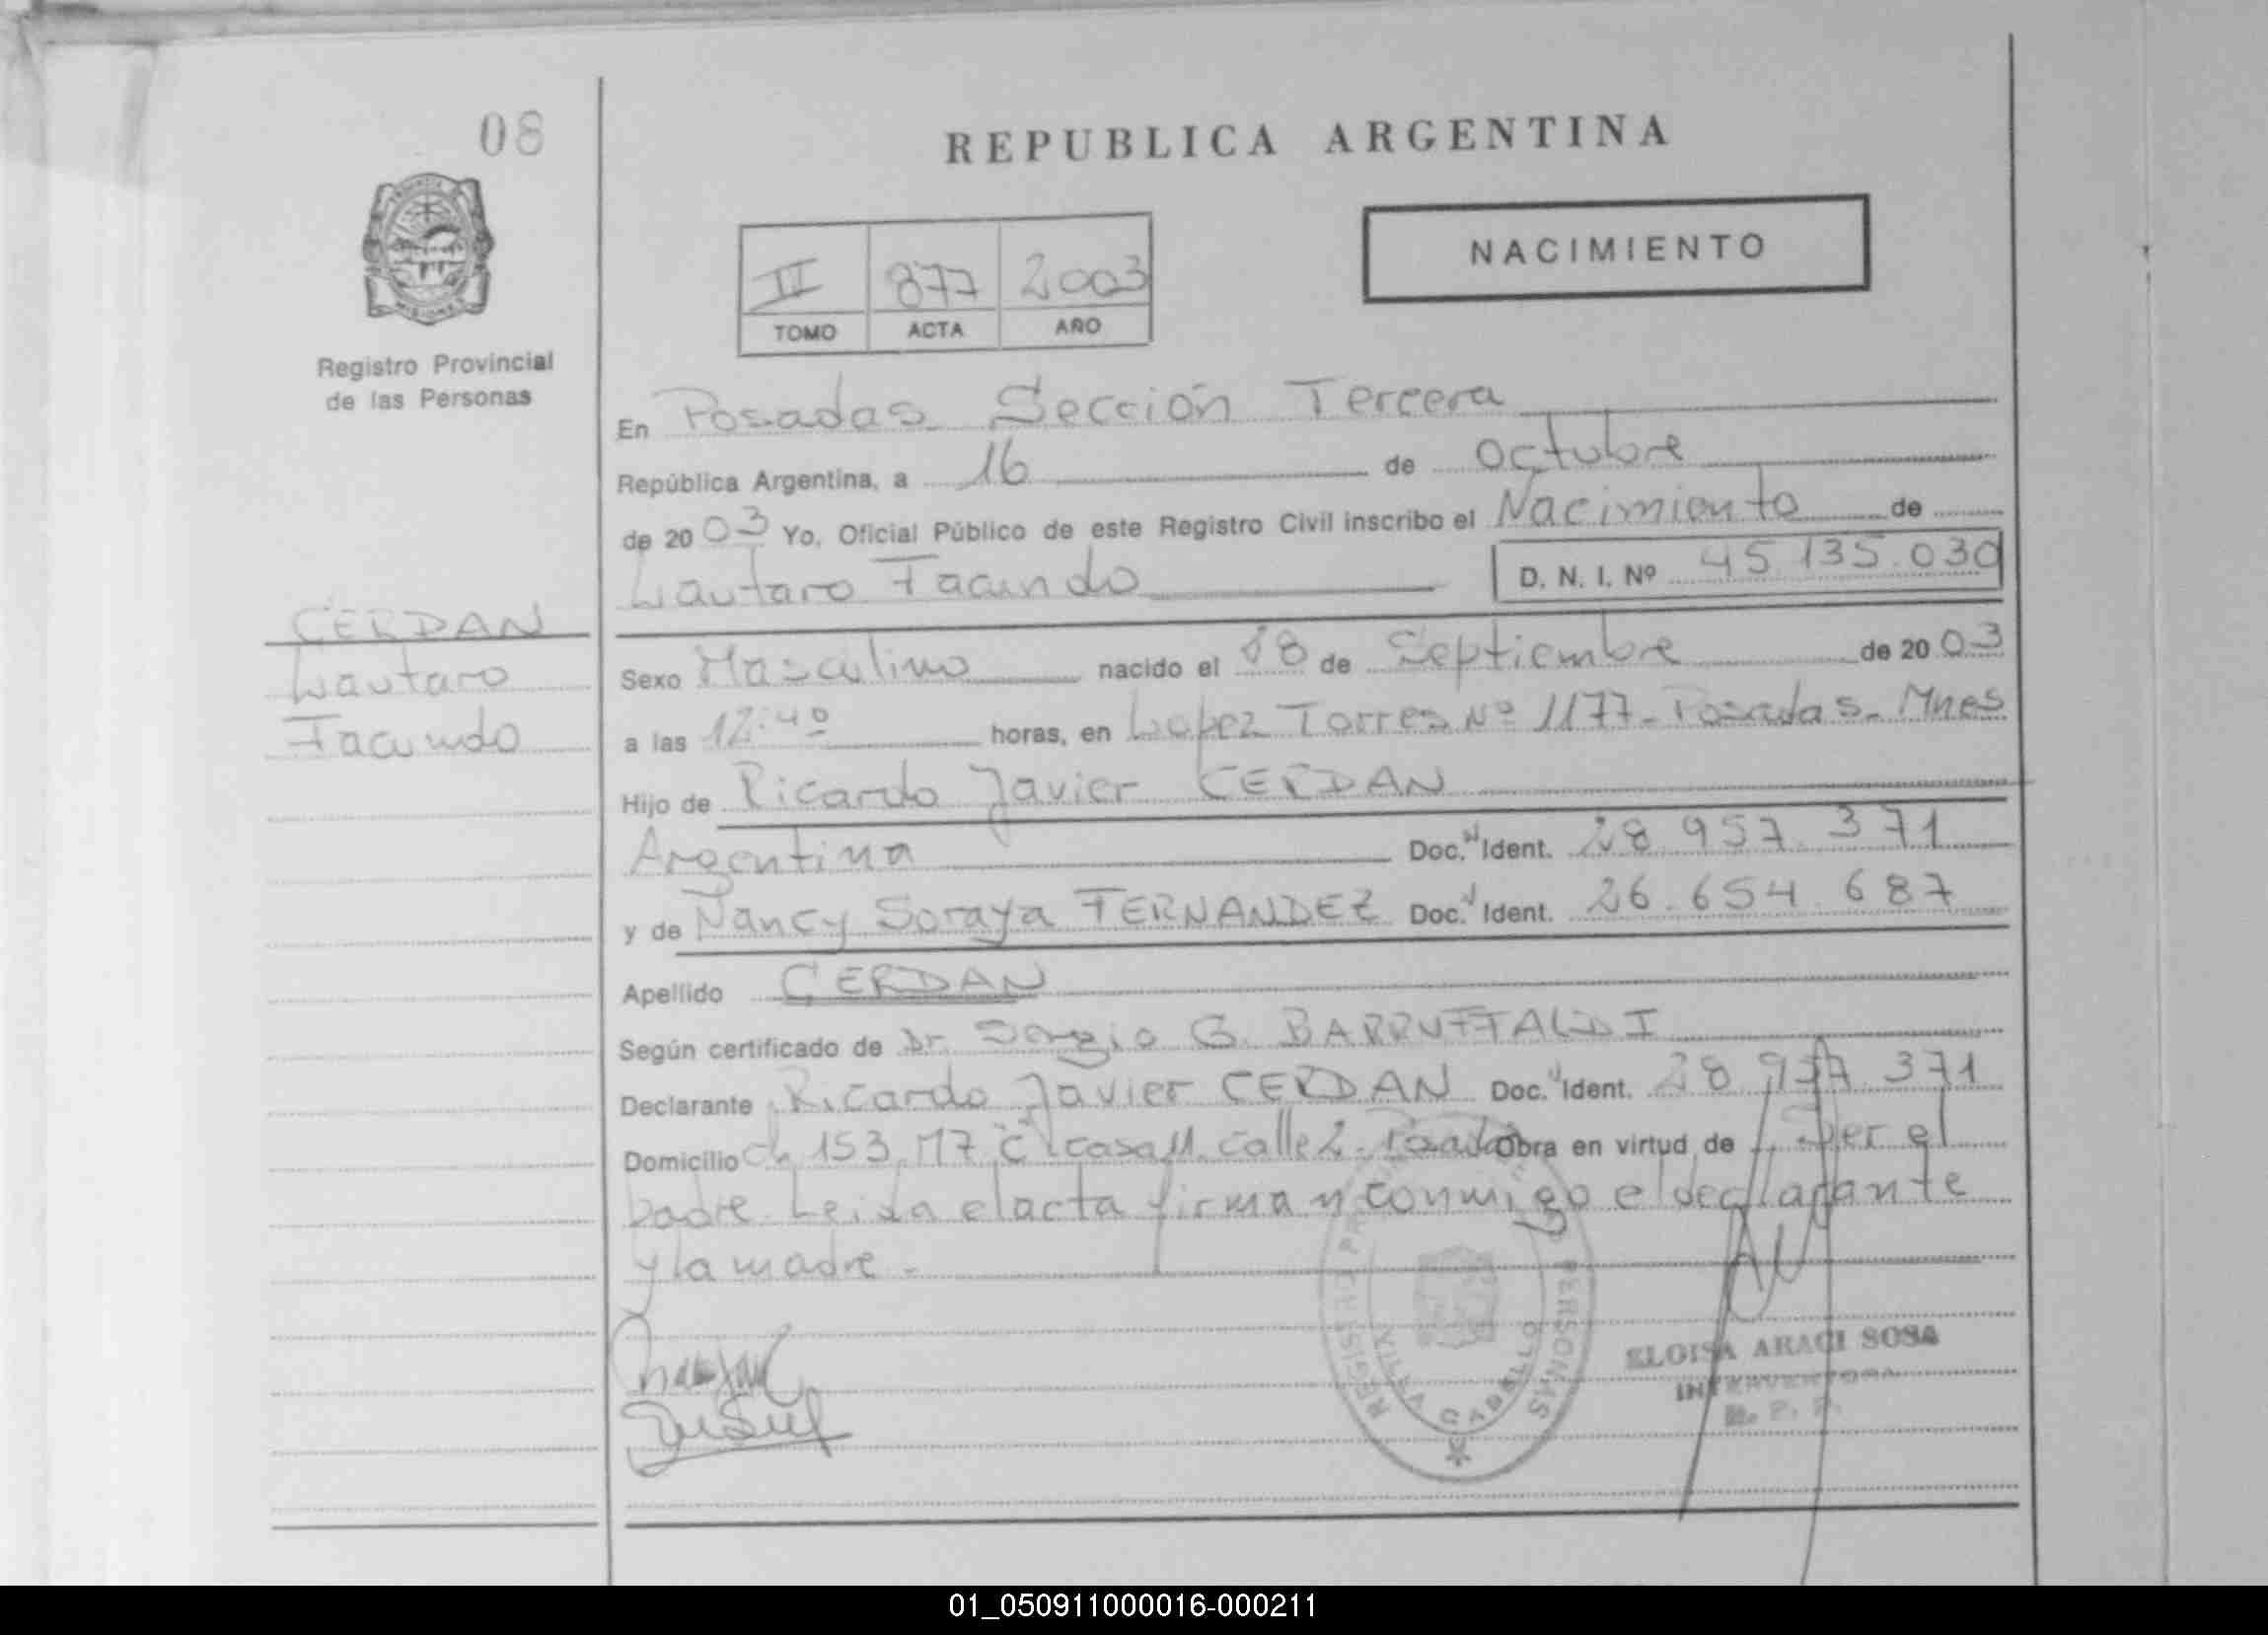 08
REPUBLICA ARGENTINA
NACIMIENTO
III 877 2003
TOMO ACTA AÑO
Registro Provincial
de las Personas
En Posadas Sección Tercera
República Argentina, a 16 de octubre
de 2003 Yo, Oficial Público de este Registro Civil inscribo el Nacimiento de
Lautaro Facundo D. N. I. Nº 45 135.030
CERDAN
Lautaro
Facundo
Sexo Masculino nacido el 18 de Septiembre de 2003
a las 12:40 horas, en Lopez Torres Nº 1177 - Posadas - Mnes
Hijo de Ricardo Javier CERDAN
Argentina Doc. Ident. 28.957.371
y de Nancy Soraya FERNANDEZ Doc. Ident. 26.654.687
Apellido CERDAN
Según certificado de Dr. Sergio G. BARRUFFALDI
Declarante Ricardo Javier CERDAN Doc. Ident. 28 957 371
Domicilio Ch 153 M7 "C" casa 11 calle 2 - Posadas Obra en virtud de Ser el
padre. Leida el acta firman conmigo el declarante
y la madre.-
REGISTRO PERSONAS
VILLA CABELLO
ELOISA ARACI SOSA
INTERVENTORA
R. P. P.
01_050911000016-000211